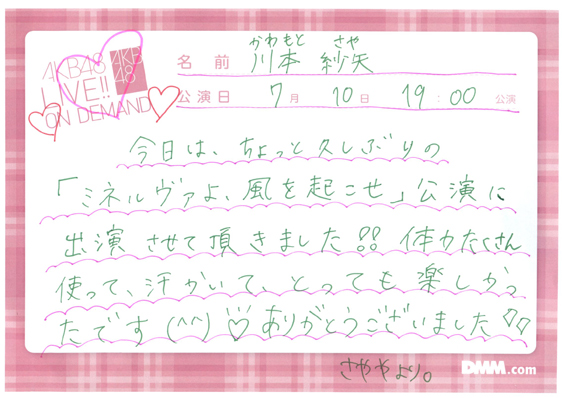 AKB48
LIVE!!
ON DEMAND
AKB
48
かわもと さや
名前 川本 紗矢
公演日 7月 10日 19:00 公演
今日は、ちょっと久しぶりの
「ミネルヴァよ、風を起こせ」公演に
出演 させて頂きました!! 体力たくさん
使って、汗かいて、とっても 楽しかっ
たです (^^) ♡ ありがとうございました♡♡
さややより。
DMM.com